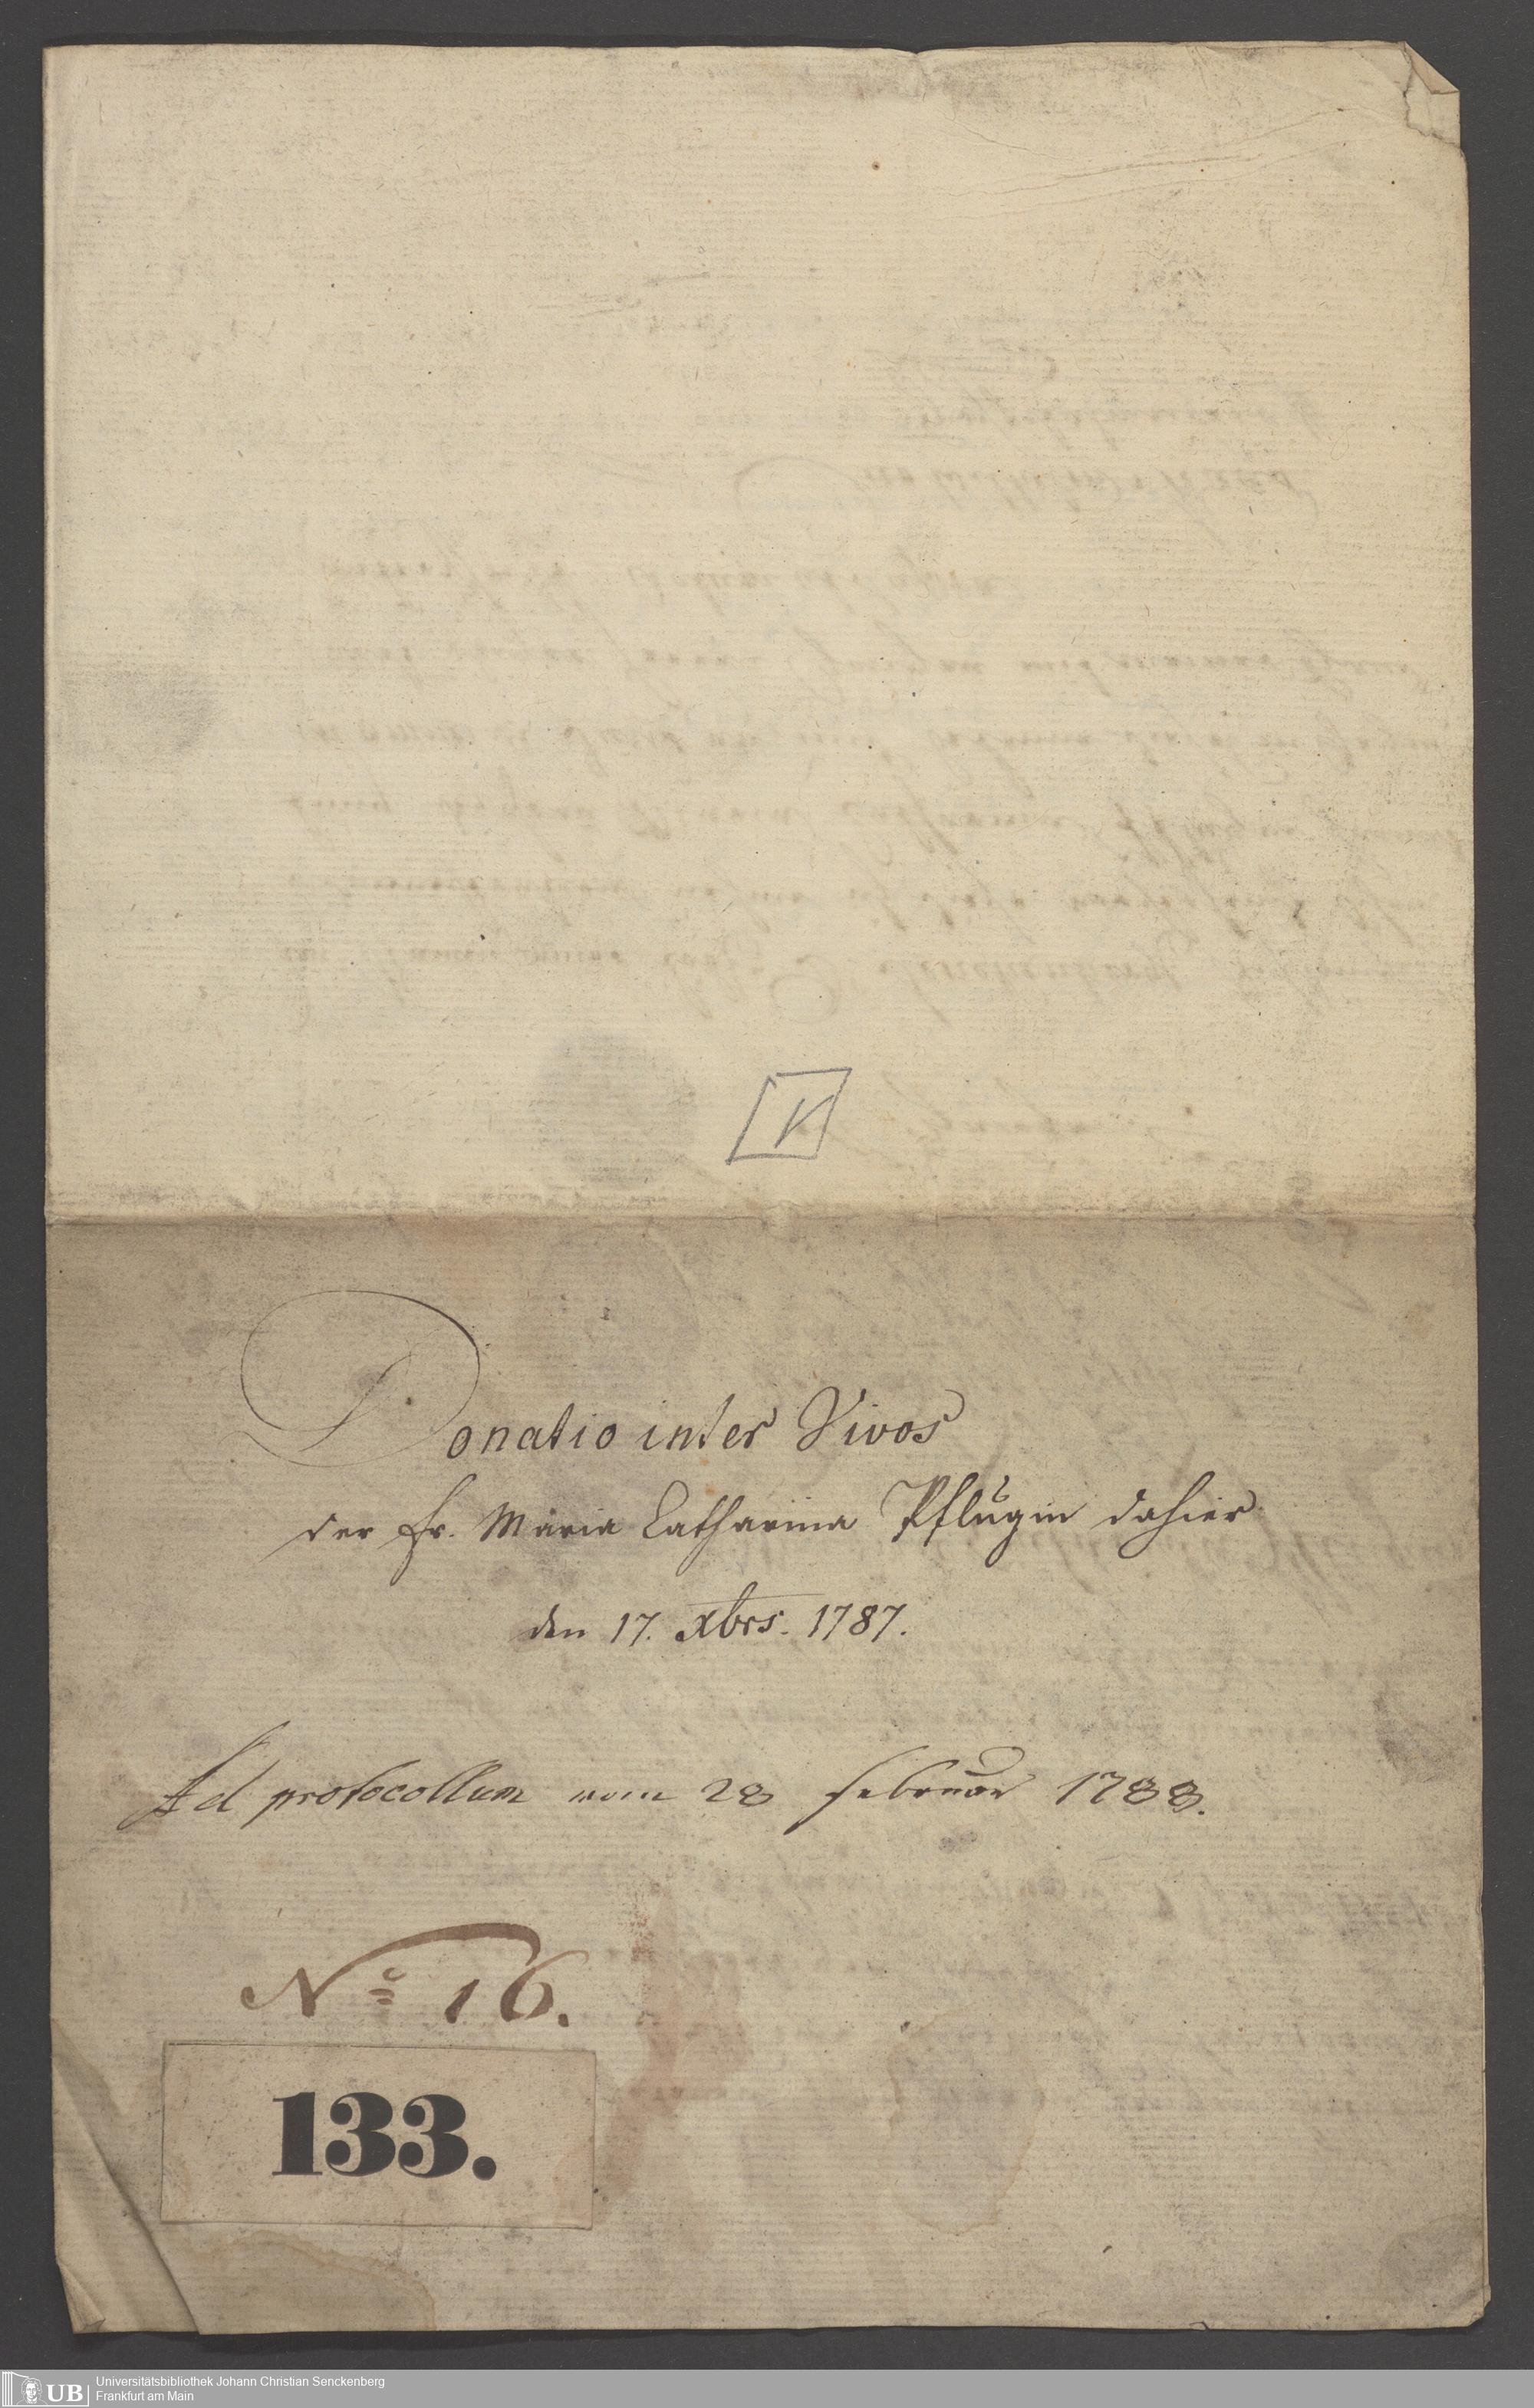 Donatio inter Vivos
der Fr. Maria Catharina Pflugin dahier
den 17. xbrs. 1787.
Ad protocollum vom 28 Februar 1788.
No 16.
133.
UB
Universitätsbibliothek Johann Christian Senckenberg
Frankfurt am Main